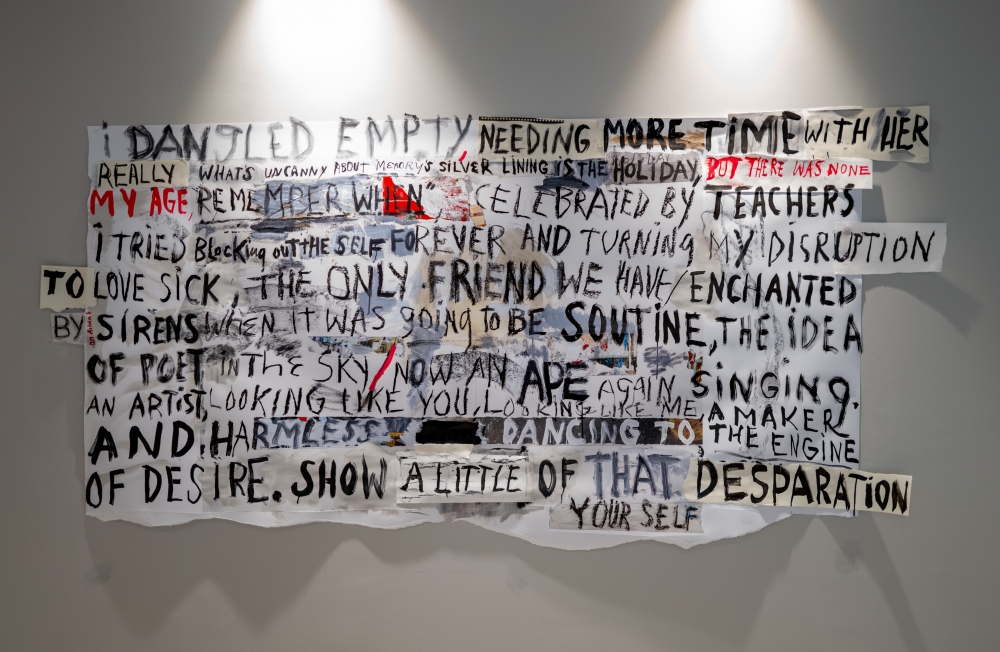 i DANGLED EMPTY NEEDING MORE TiME WITH HER
REALLY WHATS UNCANNY ABOUT MEMORY'S SILVER LINING IS THE HOLIDAY, BUT THERE WAS NONE
MY AGE, REMEMBER WHEN" CELEBRATED BY TEACHERS
i TRIED BLocking ouT THE SELF FOREVER AND TURNINg MY DISRUPTION
TO LOVE SICK, THE ONLY FRIEND WE HAVE/ENCHANTED
BY SIRENS WHEN IT WAS gOING to BE SOUTINE, THE iDEA
OF POET IN THE SKY/NOW AN APE AGAIN SiNGiNG.
AN ARTIST, LOOKING LIKE YOU, LOOKING LIKE ME, A MAKER
AND HARMLESS DANCING TO THE ENGINE
OF DESIRE. SHOW A LITTLE OF THAT DESPARATiON
YOUR SELF